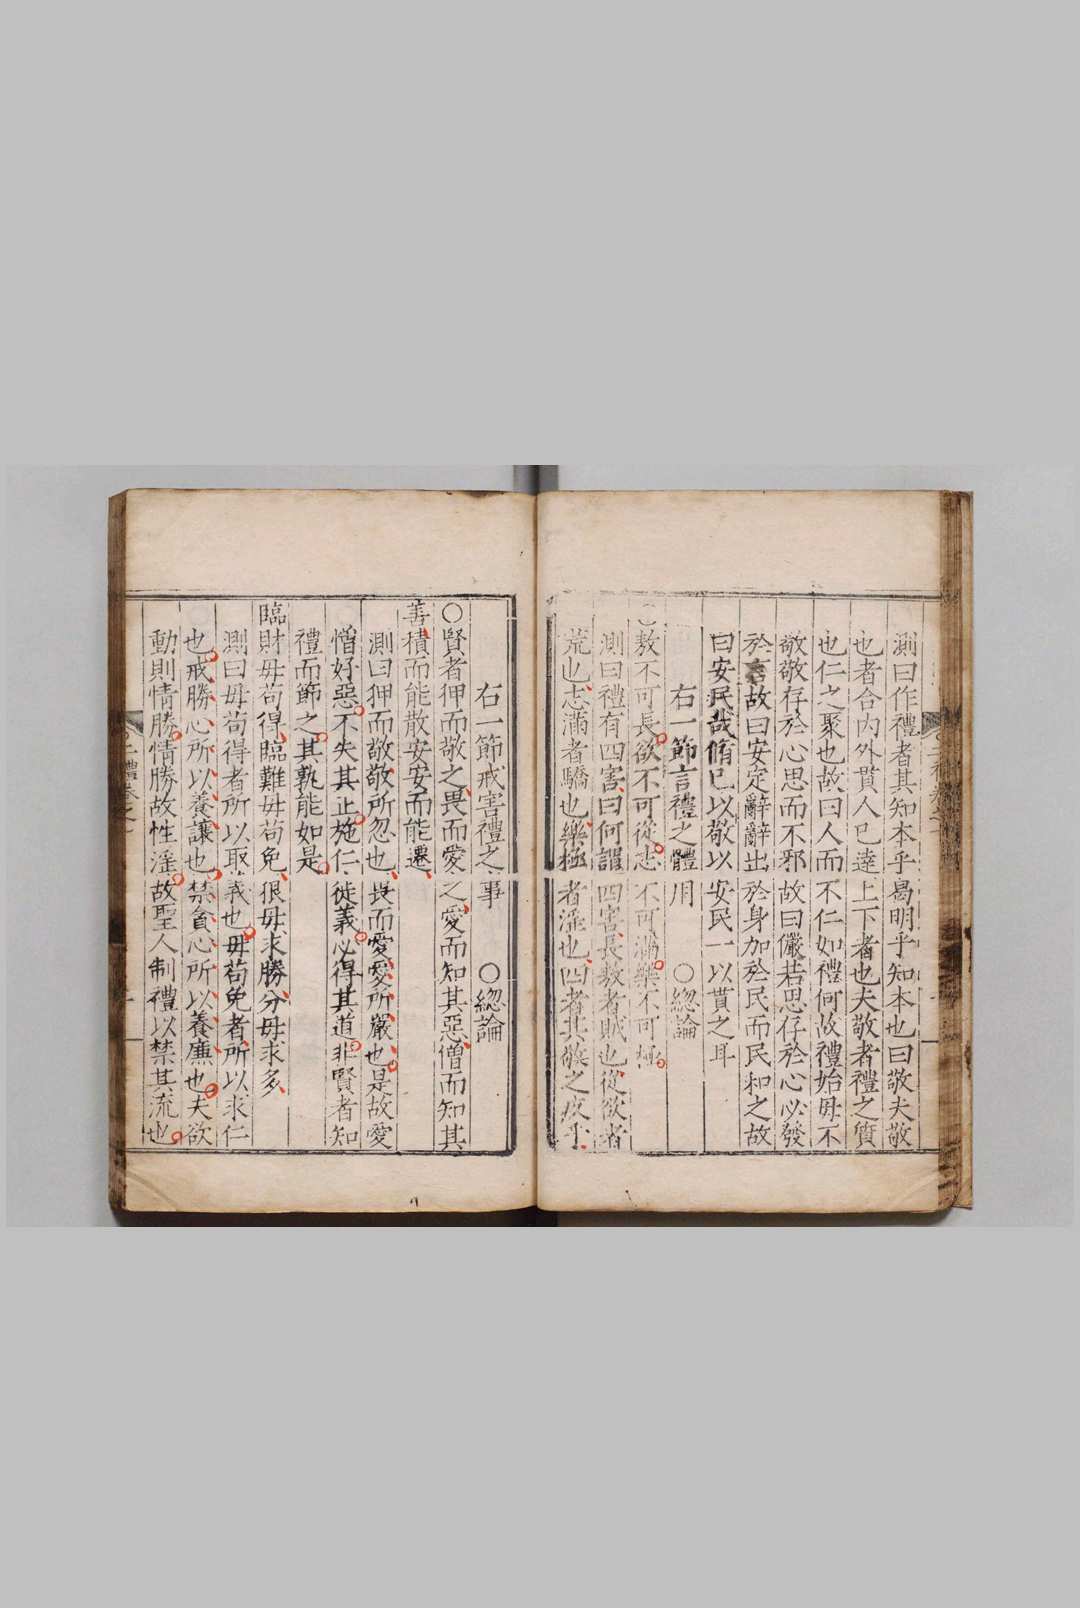 測曰作禮者其知本乎曷明乎知本也曰敬夫敬
也者合內外貫人已達上下者也夫敬者禮之質
也仁之聚也故曰人而不仁如禮何故禮始毋不
敬敬存於心思而不邪故曰儼若思存於心必發
於言故曰安定辭辭出於身加於民而民和之故
曰安民哉脩已以敬以安民一以貫之耳
右一節言禮之體用 〇總論
〇敖不可長欲不可從志不可滿樂不可極
測曰禮有四害曰何謂四害長敖者賊也從欲者
荒也志滿者驕也樂極者淫也四者其敬之疚乎
右一節戒害禮之事 〇總論
〇賢者狎而敬之畏而愛之愛而知其惡憎而知其
善積而能散安安而能遷
測曰狎而敬敬所忽也畏而愛愛所嚴也是故愛
憎好惡不失其正施仁徙義必得其道非賢者知
禮而節之其孰能如是
臨財毋苟得臨難毋苟免狠毋求勝分毋求多
測曰毋苟得者所以取義也毋苟免者所以求仁
也戒勝心所以養讓也禁貪心所以養廉也夫欲
動則情勝情勝故性淫故聖人制禮以禁其流也
二禮卷之一